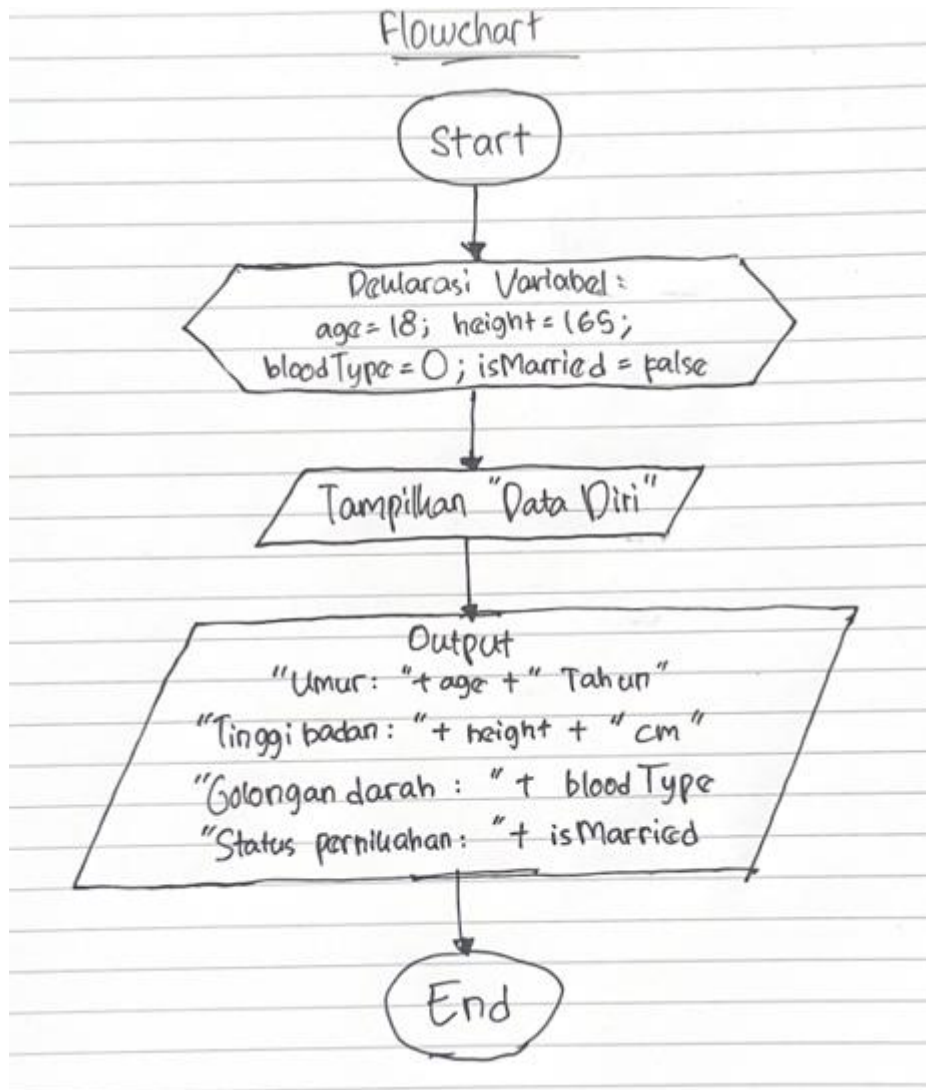 Flowchart
Start
Deklarasi Variabel:
age = 18; height = 165;
bloodType = O; isMarried = false
Tampilkan "Data Diri"
Output
"Umur: "+ age +" Tahun"
"Tinggi badan: "+ height + "cm"
"Golongan darah : " + bloodType
"Status pernikahan: "+ isMarried
End